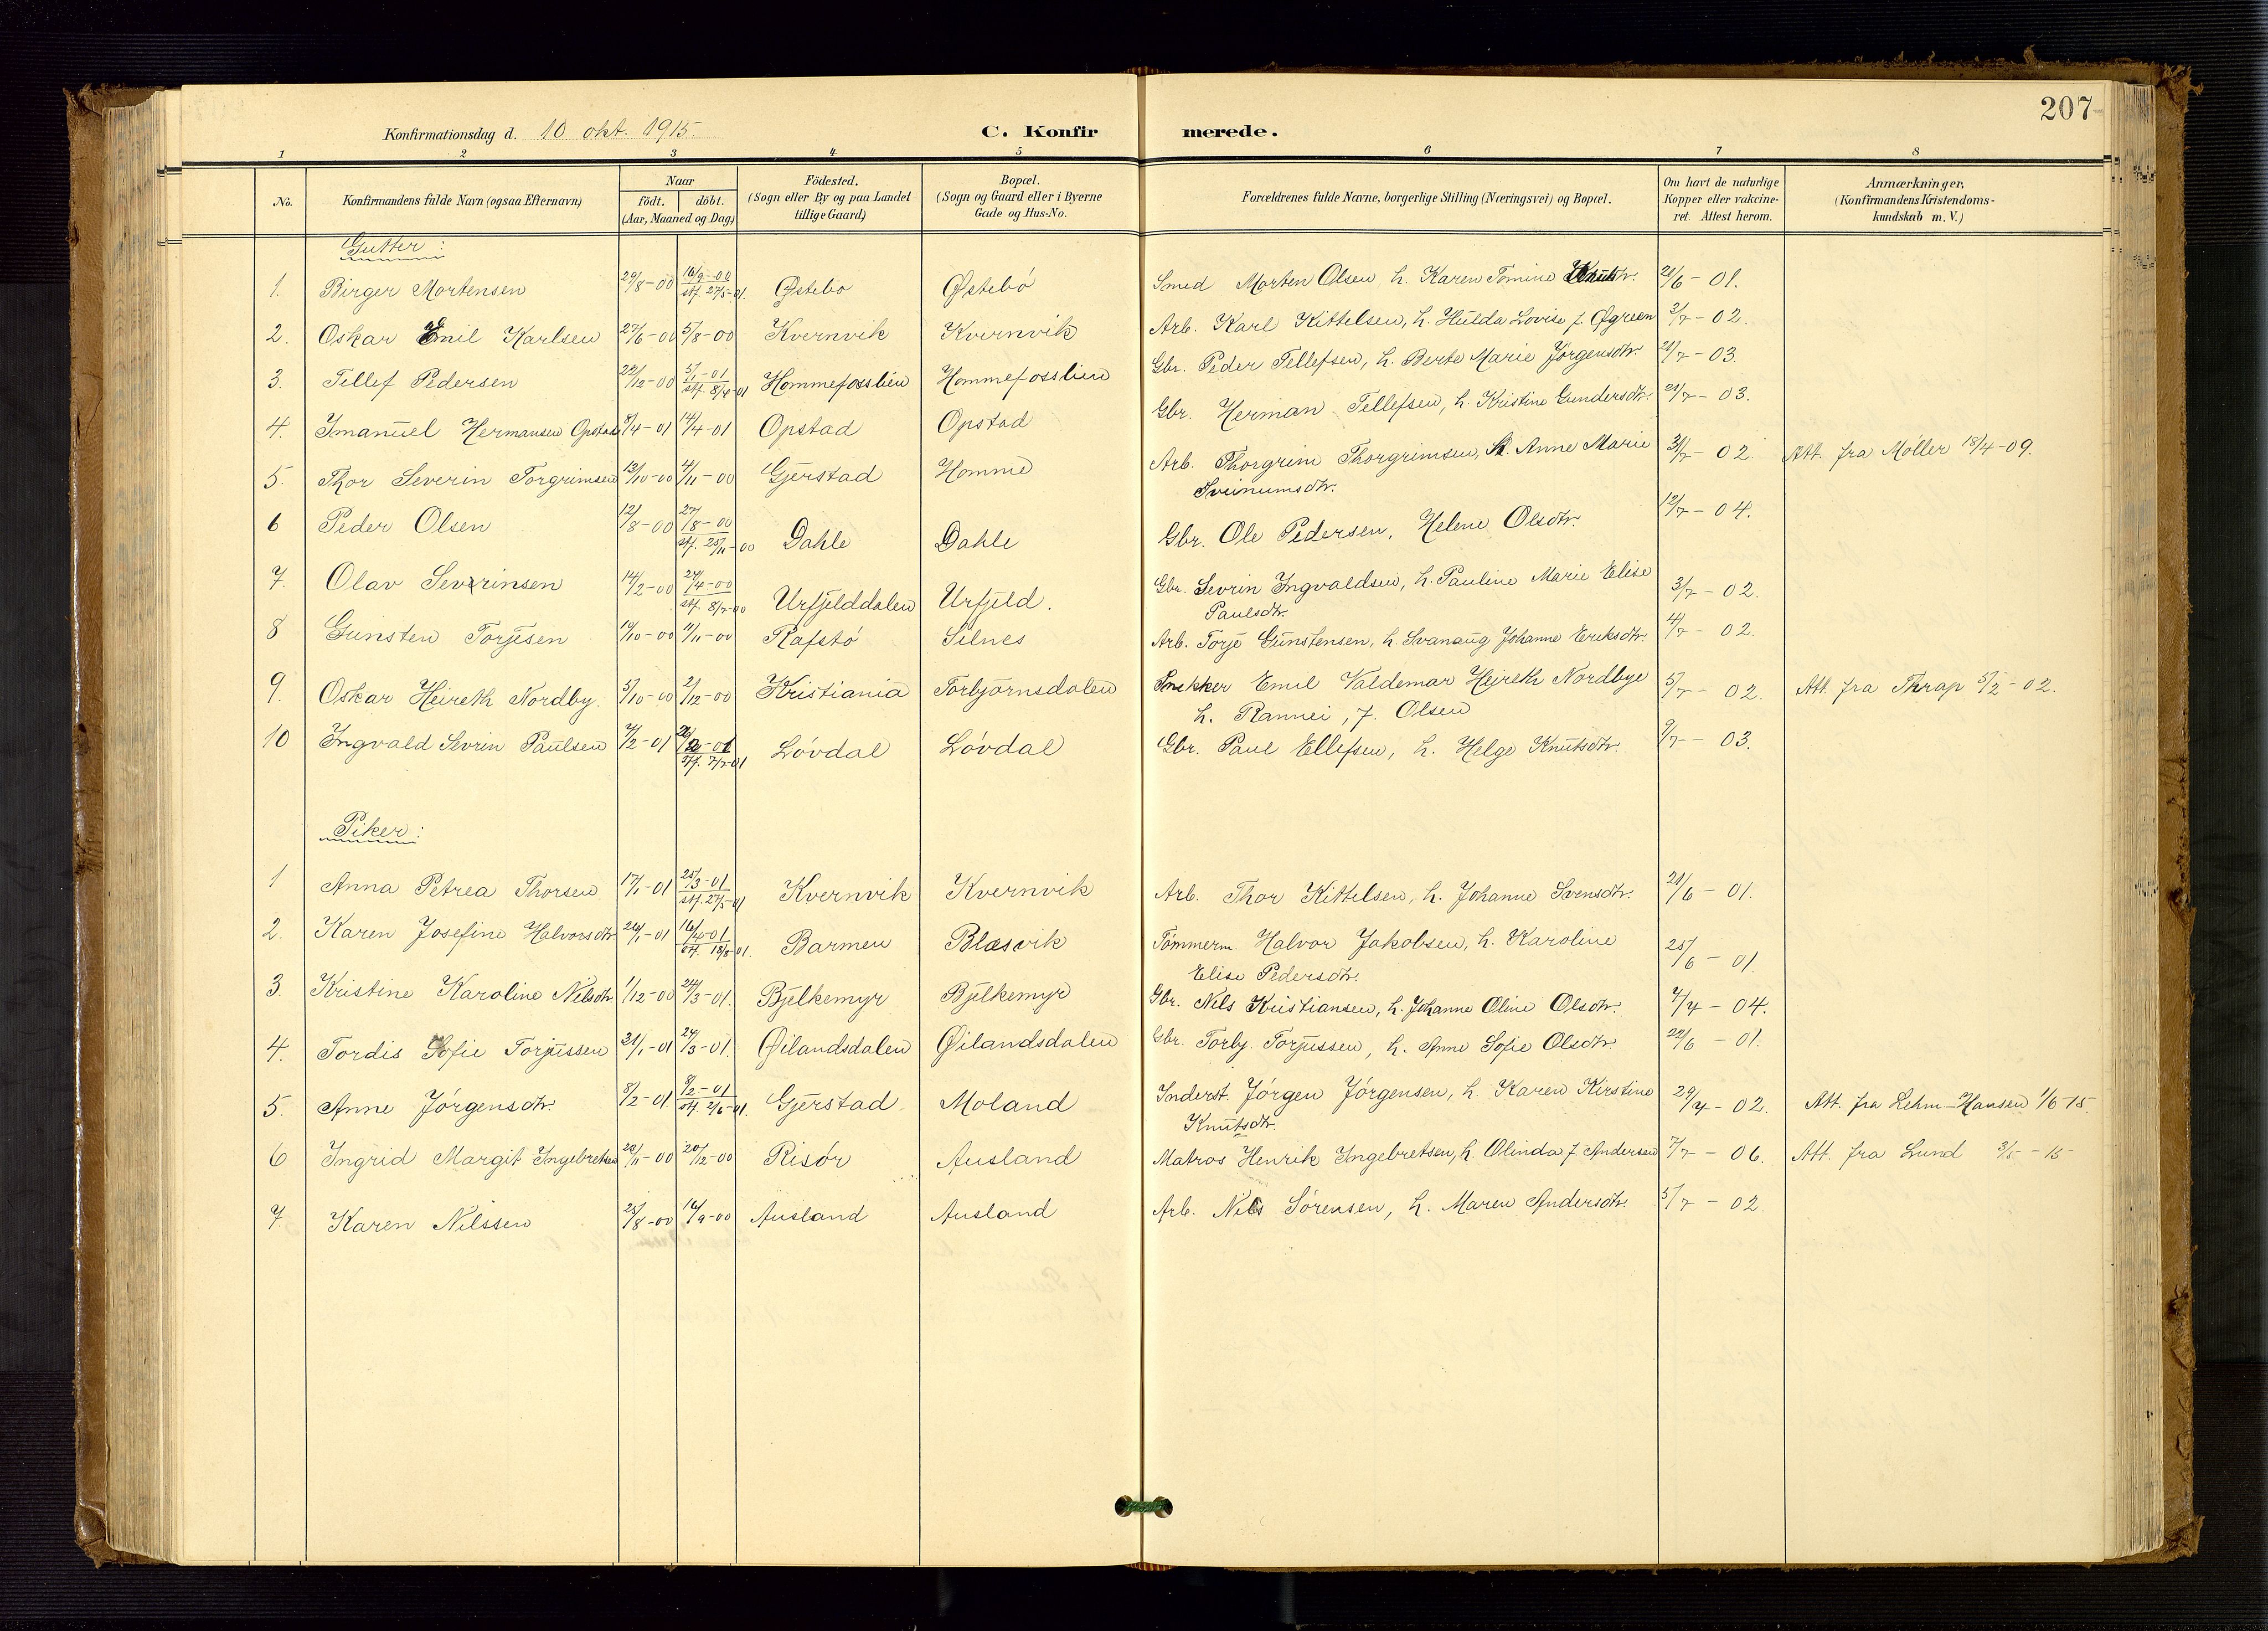 207
Konfirmationsdag d. 10 okt. 1915.
C. Konfirmerede.
1 2 3 4 5 6 7 8
No.
Konfirmandens fulde Navn (ogsaa Efternavn)
Naar
födt. döbt.
(Aar, Maaned og Dag)
Födested.
(Sogn eller By og paa Landet
tillige Gaard)
Bopæl.
(Sogn og Gaard eller i Byerne
Gade og Hus-No.
Forældrenes fulde Navne, borgerlige Stilling (Næringsvei) og Bopæl.
Om havt de naturlige
Kopper eller vakcine-
ret. Attest herom.
Anmærkninger,
(Konfirmandens Kristendoms-
kundskab m. V.)
Gutter:
1. Birger Mortensen 29/8-00 16/9-00 stf. 27/5-01. Østebø Østebø Smed Morten Olsen, h. Karen Tomine Knutsdtr. 21/6-01.
2. Oskar Emil Karlsen 27/6-00 5/8-00 Kvernvik Kvernvik Arb. Karl Kittelsen, h. Hulda Lovise f. Øgreen 3/7-02.
3. Tellef Pedersen 22/12-00 5/1-01 stf. 8/4-01 Hommefosslien Hommefosslien Gbr. Peder Tellefsen, h. Berte Marie Jørgensdtr. 21/7-03.
4. Imanuel Hermansen Opstad 8/4-01 14/4-01 Opstad Opstad Gbr. Herman Tellefsen, h. Kristine Gundersdtr. 21/7-03.
5. Thor Severin Torgrimsen 13/10-00 4/11-00 Gjerstad Homme Arb. Thorgrim Thorgrimsen, h. Anne Marie 3/7-02. Att. fra Møller 18/4-09.
Sveinumsdtr.
6 Peder Olsen 12/8-00 27/8-00 stf. 25/11-00 Dahle Dahle Gbr. Ole Pedersen, Helene Olsdtr. 12/7-04.
7. Olav Sevrinsen 14/2-00 27/4-00 stf. 8/7-00 Urfjelddalen Urfjeld. Gbr. Sevrin Ingvaldsen, h. Pauline Marie Elise 3/7-02.
Paulsdtr.
8 Gunsten Torjesen 19/10-00 11/11-00 Rafstø Silnes Arb. Torje Gunstensen, h. Svanaug Johanne Eriksdtr. 4/7-02.
9. Oskar Heireth Nordby. 5/10-00 2/12-00 Kristiania Torbjørnsdalen Snekker Emil Valdemar Hejreth Nordbye 5/7-02. Att. fra Thrap 5/2-02.
h. Rannei, f. Olsen
10 Ingvald Sevrin Paulsen 7/2-01 stf. 7/7-01 Løvdal Løvdal Gbr. Paul Ellefsen, h. Helge Knutsdtr. 9/7-03.
Piker:
1 Anna Petrea Thorsen 17/1-01 25/3-01 stf. 27/5-01 Kvernvik Kvernvik Arb. Thor Kittelsen, h. Johanne Svensdtr. 21/6-01.
2. Karen Josefine Halvorsdtr. 26/1-01 16/4-01 stf. 18/8-01. Barmen Blæsvik Tømmerm. Halvor Jakobsen, h. Karoline 25/6-01
Elise Pedersdtr.
3. Kristine Karoline Nilsdtr. 1/12-00 24/3-01. Bjelkemyr Bjelkemyr Gbr. Nils Kristiansen, h. Johanne Oline Olsdtr. 7/4-04.
4. Tordis Sofie Torjussen 21/1-01 24/3-01. Øilandsdalen Øilandsdalen Gbr. Torbj. Torjussen, h. Anne Sofie Olsdtr. 22/6-01.
5. Anne Jørgensdtr. 8/2-01 9/2-01 stf. 2/6-01. Gjerstad Moland Inderst. Jørgen Jørgensen, h. Karen Kirstine 29/4-02. Att. fra Lehm-Hansen 1/6-15.
Knutsdtr.
6 Ingrid Margit Ingebretsen 20/11-00 20/12-00 Risør Ausland Matros Henrik Ingebretsen, h. Olinda f. Andersen 7/7-06. Att. fra Lund 3/5-15
7. Karen Nilssen 25/8-00 16/9-00 Ausland Ausland Arb. Nils Sørensen, h. Maren Andersdtr. 5/7-02.